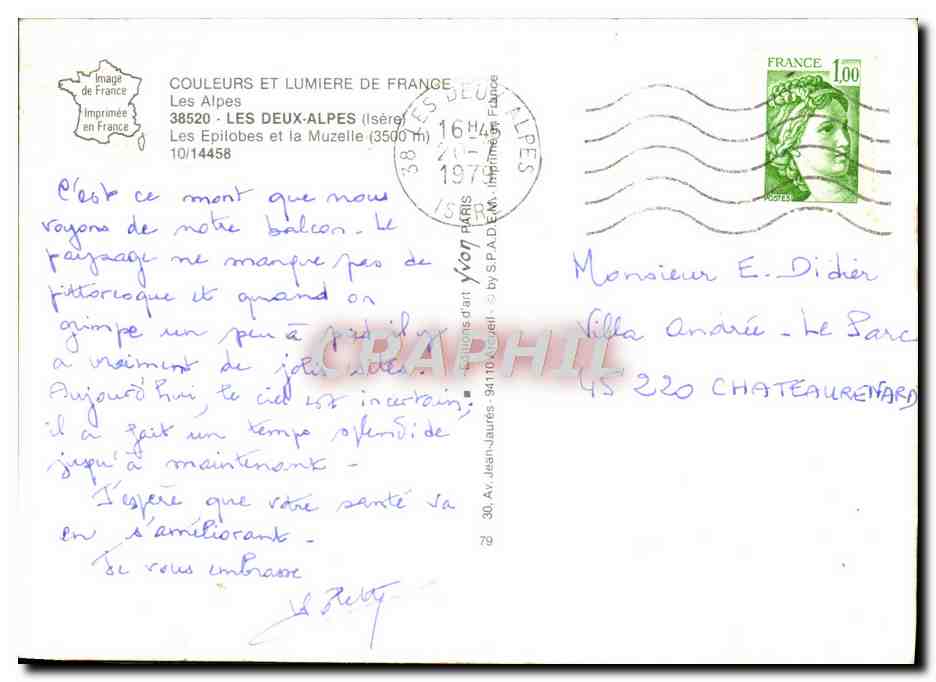 Image
de France
Imprimée
en France
COULEURS ET LUMIERE DE FRANCE
Les Alpes
38520 - LES DEUX-ALPES (Isère)
Les Epilobes et la Muzelle (3500 m)
10/14458
38 LES DEUX ALPES
16 H 45
1979
ISERE
FRANCE
1,00
POSTES
C'est ce mont que nous
voyons de notre balcon - Le
paysage ne manque pas de
pittoresque et quand on
grimpe un peu à pied il y
a vraiment de jolis sites.
Aujourd'hui, le ciel est incertain,
il a fait un temps splendide
jusqu'à maintenant -
J'espère que votre santé va
en s'améliorant -
Je vous embrasse
Editions d'art yvon PARIS
30, Av. Jean-Jaurès - 94110 Arcueil - © by S.P.A.D.E.M. - Imprimé en France
79
Monsieur E. Didier
Villa Andrée - Le Parc
45 220 CHATEAURENARD
CRAPHIL